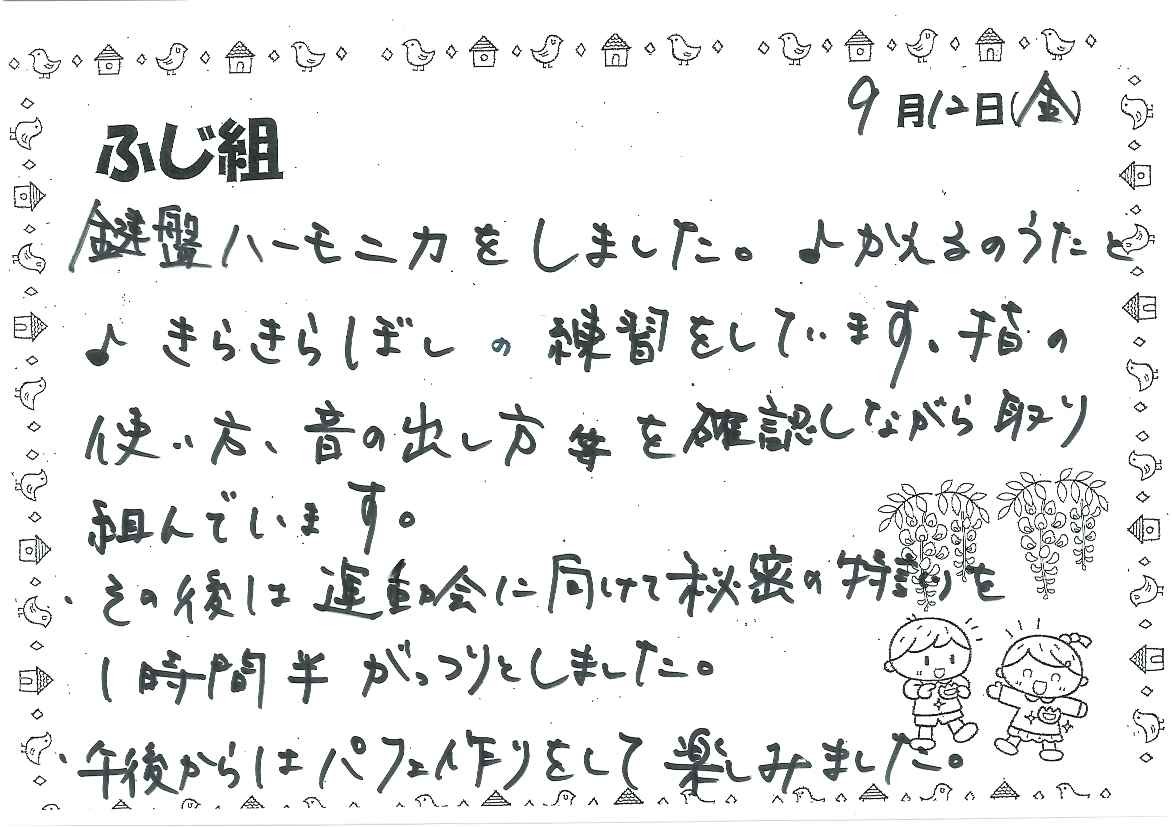 9月12日(金)
ふじ組
鍵盤ハーモニカをしました。♪かえるのうたと
♪きらきらぼしの練習をしています。指の
使い方、音の出し方等を確認しながら取り
組んでいます。
・その後は運動会に向けて秘密の特訓を
1時間半がっつりとしました。
・午後からはパフェ作りをして楽しみました。